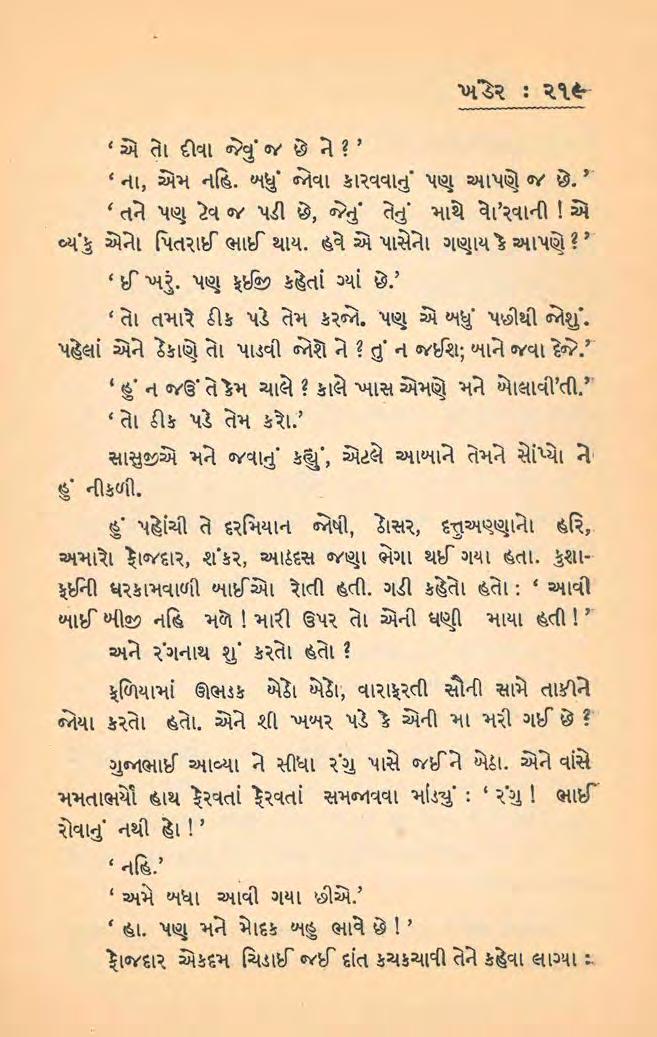 ખંડેર : ૨૧૯
‘ એ તો દીવા જેવું જ છે ને ? ’
‘ ના, એમ નહિ. બધું જોવા કારવવાનું પણ આપણે જ છે. ’
‘ તને પણ ટેવ જ પડી છે, જેનું તેનું માથે વો’રવાની ! એ
બ્યંકુ એનો પિતરાઈ ભાઈ થાય. હવે એ પાસેનો ગણાય કે આપણે ? ’
‘ ઈ ખરું. પણ ફઈજી કહેતાં ગ્યાં છે.’
‘ તો તમારે ઠીક પડે તેમ કરજો. પણ એ બધું પછીથી જોશું.
પહેલાં એને ઠેકાણે તો પાડવી જોશે ને ? તું ન જઈશ; બાને જવા દેજે.’
‘ હું ન જઉં તે કેમ ચાલે ? કાલે ખાસ એમણે મને બોલાવી’તી.’
‘ તો ઠીક પડે તેમ કરો.’
સાસુજીએ મને જવાનું કહ્યું, એટલે આબાને તેમને સોંપ્યો ને
હું નીકળી.
હું પહોંચી તે દરમિયાન જોષી, ઠોસર, દત્તુઅણ્ણાનો હરિ,
અમારો ફોજદાર, શંકર, આઠદસ જણા ભેગા થઈ ગયા હતા. કુશા-
ફઈની ઘરકામવાળી બાઈઓ રોતી હતી. ગડી કહેતો હતો : ‘ આવી
બાઈ બીજી નહિ મળે ! મારી ઉપર તો એની ઘણી માયા હતી ! ’
અને રંગનાથ શું કરતો હતો ?
ફળિયામાં ઊભડક બેઠો બેઠો, વારાફરતી સૌની સામે તાકીને
જોયા કરતો હતો. એને શી ખબર પડે કે એની મા મરી ગઈ છે ?
ગુજાભાઈ આવ્યા ને સીધા રંગુ પાસે જઈને બેઠા. એને વાંસે
મમતાભર્યો હાથ ફેરવતાં ફેરવતાં સમજાવવા માંડ્યું : ‘ રંગુ ! ભાઈ
રોવાનું નથી હો ! ’
‘ નહિ.’
‘ અમે બધા આવી ગયા છીએ.’
‘ હા. પણ મને મોદક બહુ ભાવે છે ! ’
ફોજદાર એકદમ ચિડાઈ જઈ દાંત કચકચાવી તેને કહેવા લાગ્યા :